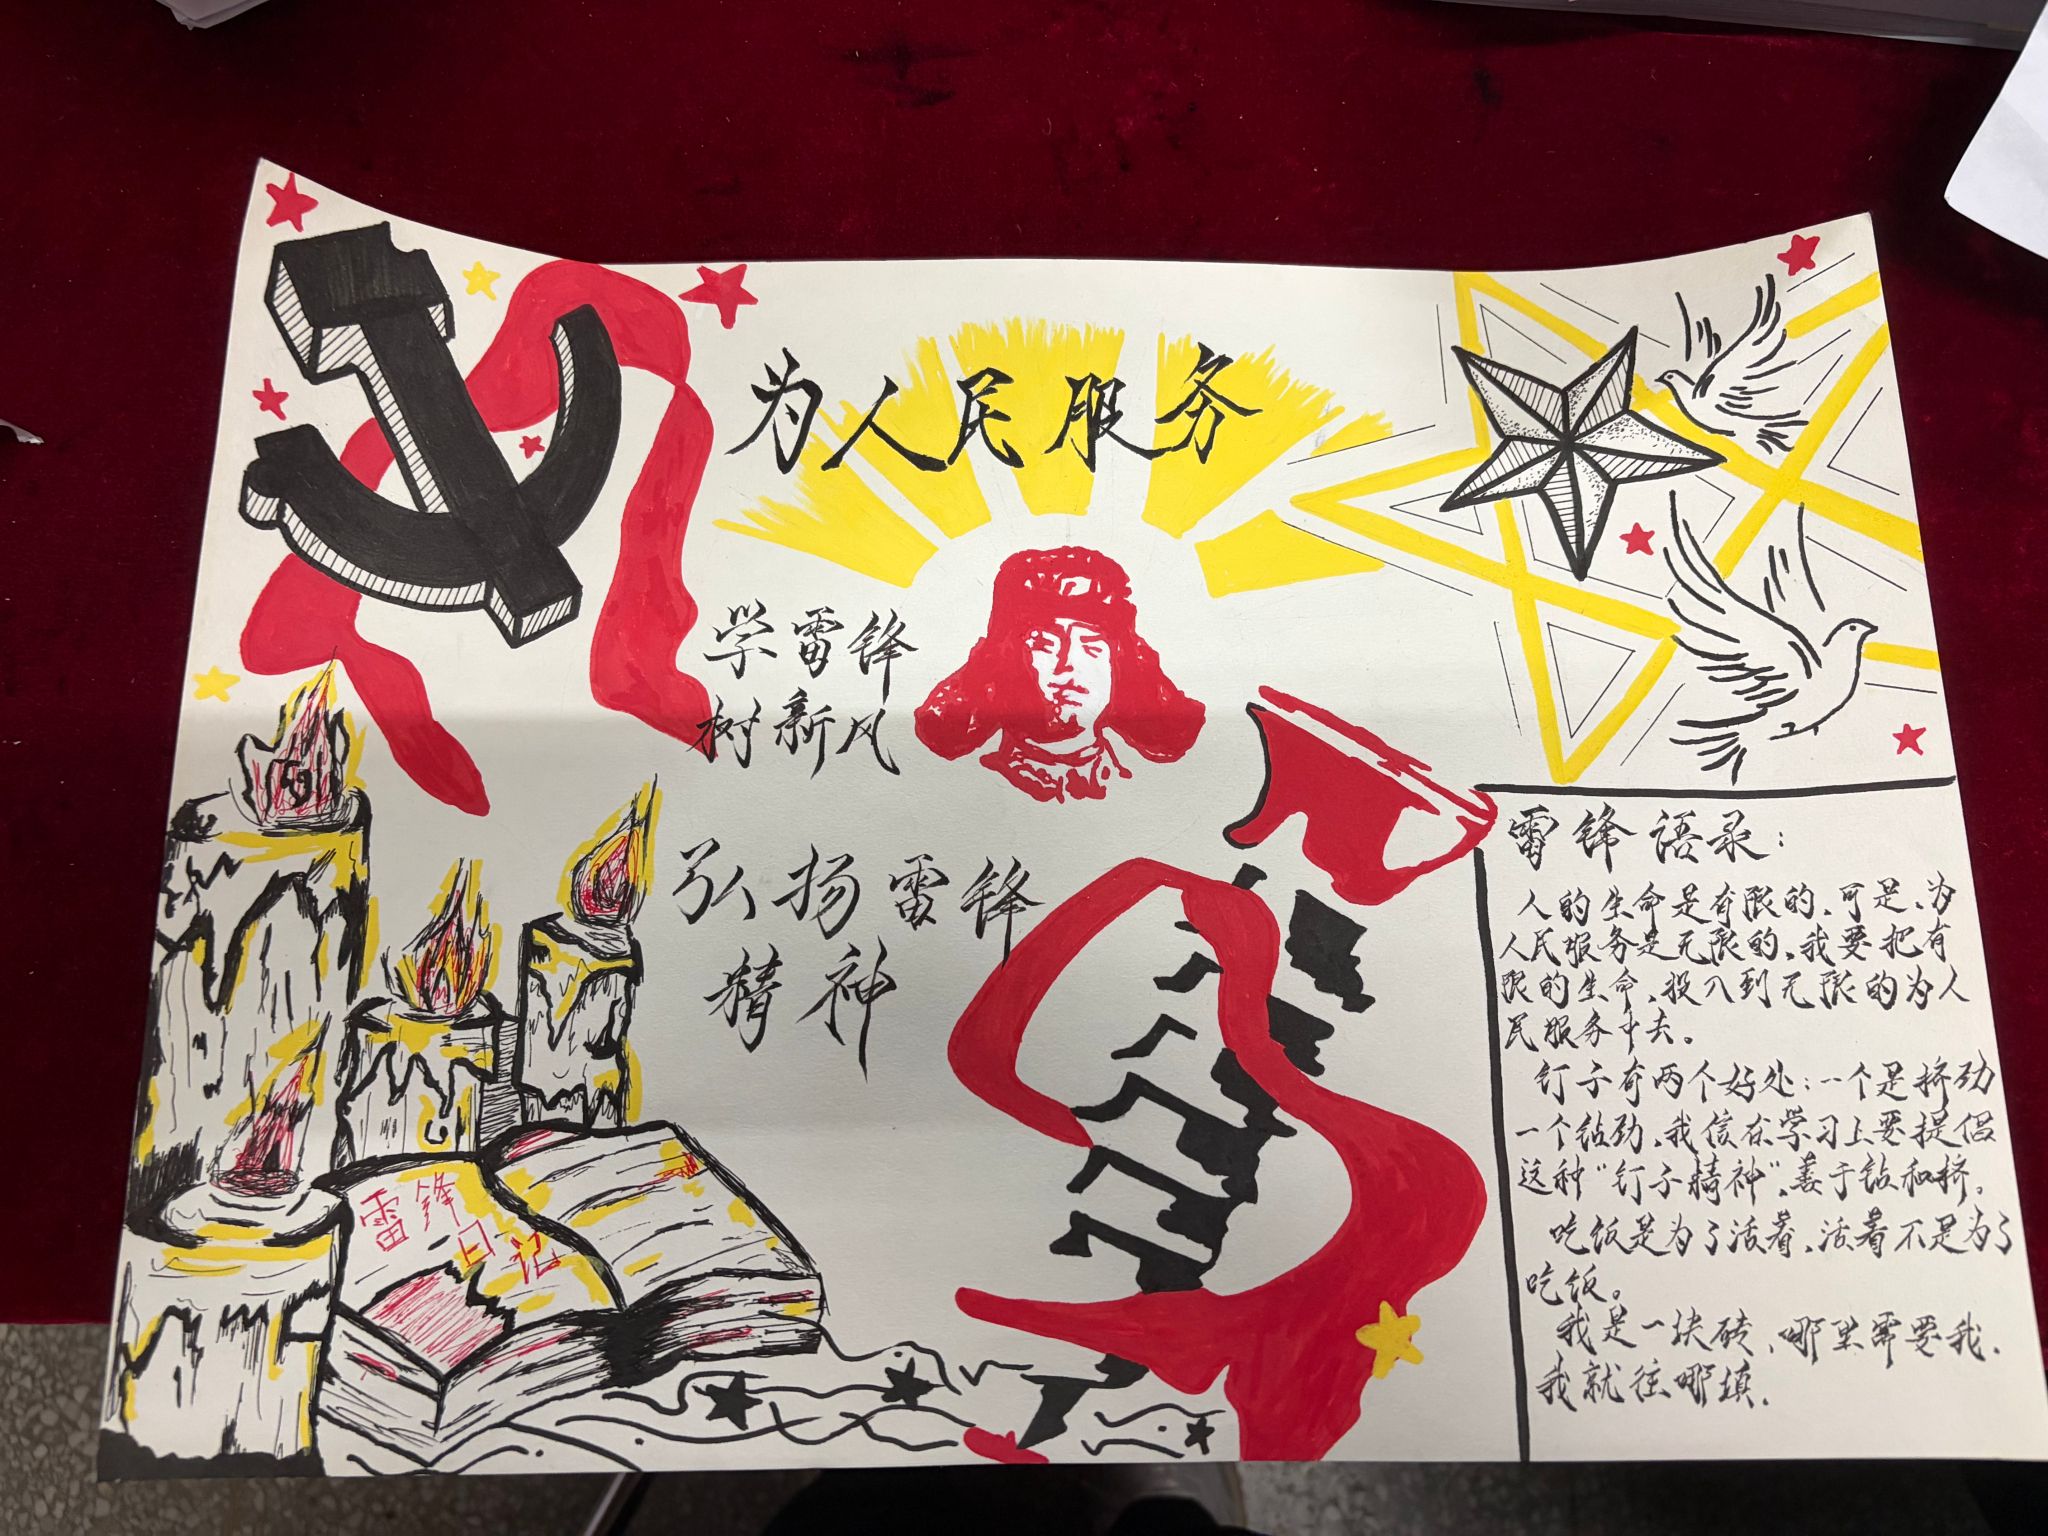 为人民服务
学雷锋
树新风
弘扬雷锋
精神
雷锋
日记
雷锋语录：
人的生命是有限的、可是、为
人民服务是无限的、我要把有
限的生命、投入到无限的为人
民服务中去。
钉子有两个好处：一个是挤劲
一个钻劲、我信在学习上要提倡
这种“钉子精神”、善于钻和挤。
吃饭是为了活着、活着不是为了
吃饭。
我是一块砖、哪里需要我.
我就往哪填.